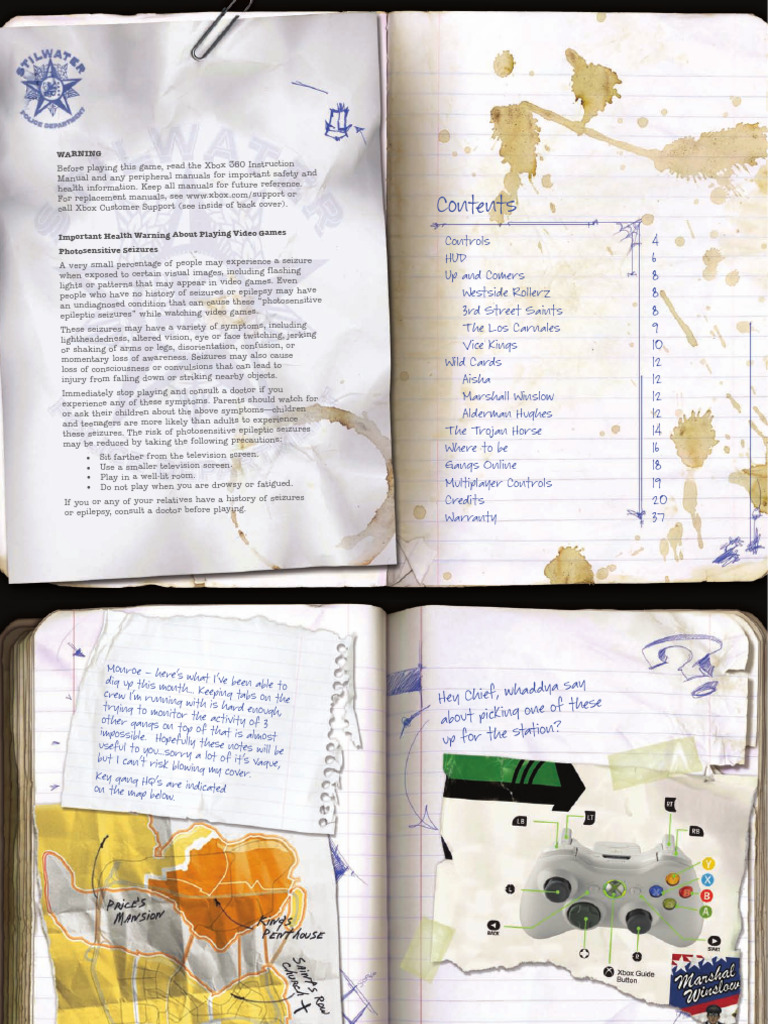 STILWATER
POLICE DEPARTMENT
WARNING
Before playing this game, read the Xbox 360 Instruction
Manual and any peripheral manuals for important safety and
health information. Keep all manuals for future reference.
For replacement manuals, see www.xbox.com/support or
call Xbox Customer Support (see inside of back cover).
Important Health Warning About Playing Video Games
Photosensitive Seizures
A very small percentage of people may experience a seizure
when exposed to certain visual images, including flashing
lights or patterns that may appear in video games. Even
people who have no history of seizures or epilepsy may have
an undiagnosed condition that can cause these “photosensitive
epileptic seizures” while watching video games.
These seizures may have a variety of symptoms, including
lightheadedness, altered vision, eye or face twitching, jerking
or shaking of arms or legs, disorientation, confusion, or
momentary loss of awareness. Seizures may also cause
loss of consciousness or convulsions that can lead to
injury from falling down or striking nearby objects.
Immediately stop playing and consult a doctor if you
experience any of these symptoms. Parents should watch for
or ask their children about the above symptoms—children
and teenagers are more likely than adults to experience
these seizures. The risk of photosensitive epileptic seizures
may be reduced by taking the following precautions:
• Sit farther from the television screen.
• Use a smaller television screen.
• Play in a well-lit room.
• Do not play when you are drowsy or fatigued.
If you or any of your relatives have a history of seizures
or epilepsy, consult a doctor before playing.
Contents
Controls 4
HUD 6
Up and Comers 8
Westside Rollerz 8
3rd Street Saints 8
The Los Carnales 9
Vice Kings 10
Wild Cards 12
Aisha 12
Marshall Winslow 12
Alderman Hughes 12
The Trojan Horse 14
Where to be 16
Gangs Online 18
Multiplayer Controls 19
Credits 20
Warranty 37
Monroe – here's what I've been able to
dig up this month... Keeping tabs on the
crew I'm running with is hard enough,
trying to monitor the activity of 3
other gangs on top of that is almost
impossible. Hopefully these notes will be
useful to you...sorry a lot of it's vague,
but I can't risk blowing my cover.
Key gang HQ's are indicated
on the map below.
PRICE'S
MANSION
KING'S
PENTHOUSE
SAINT'S ROW
CHURCH
Hey Chief, whaddya say
about picking one of these
up for the station?
LB
LT
RT
RB
Y
X
B
A
L
BACK
R
START
Xbox Guide
Button
Marshal
Winslow